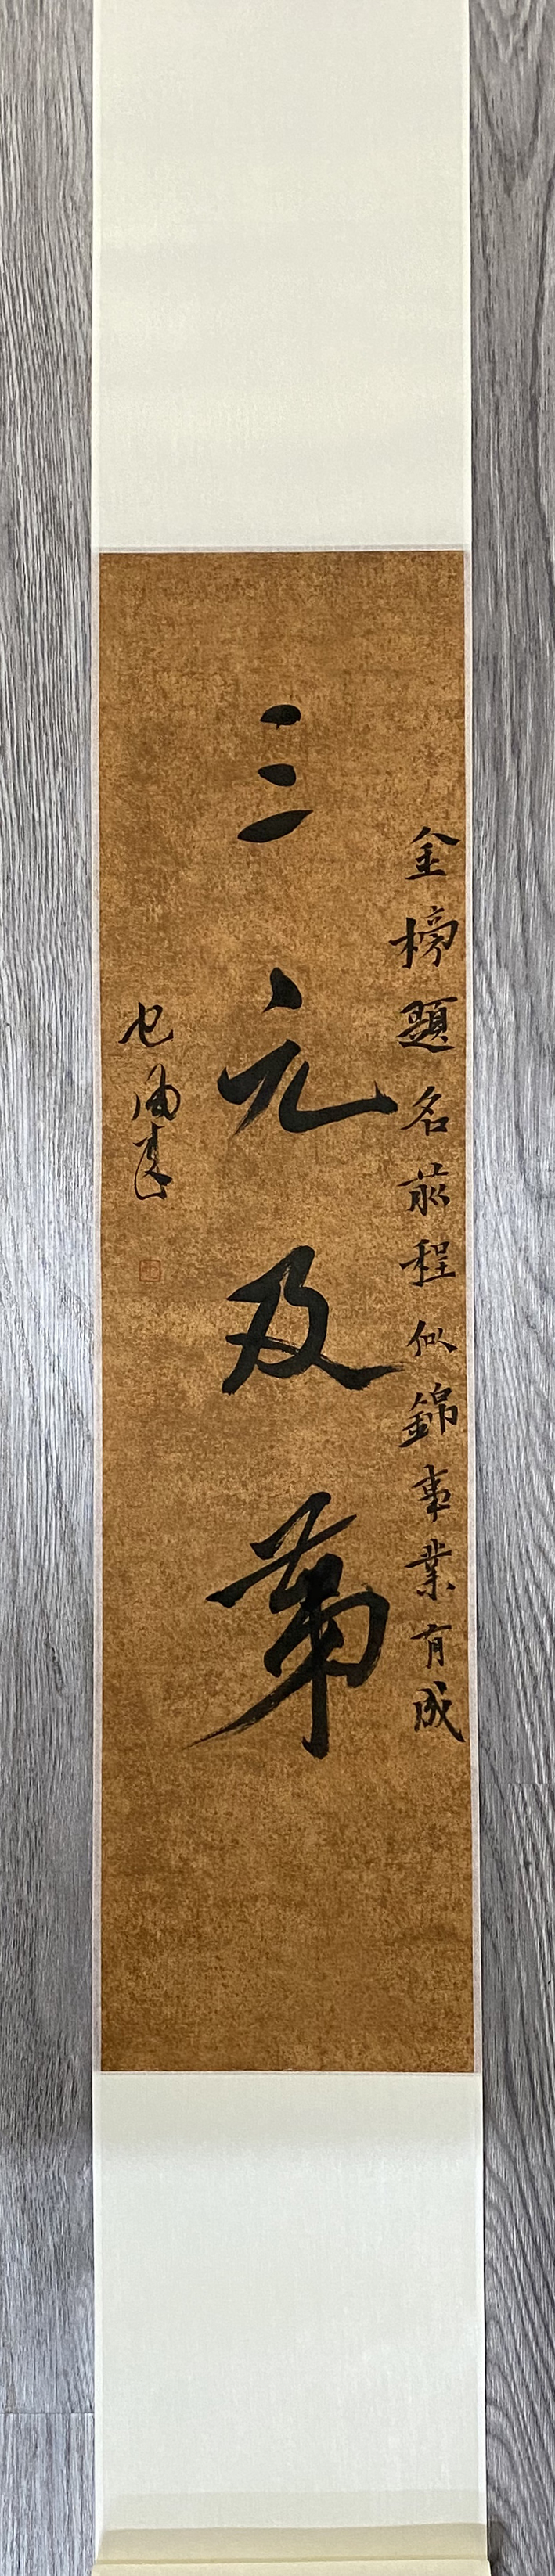 金榜題名前程似錦事業有成
三元及第